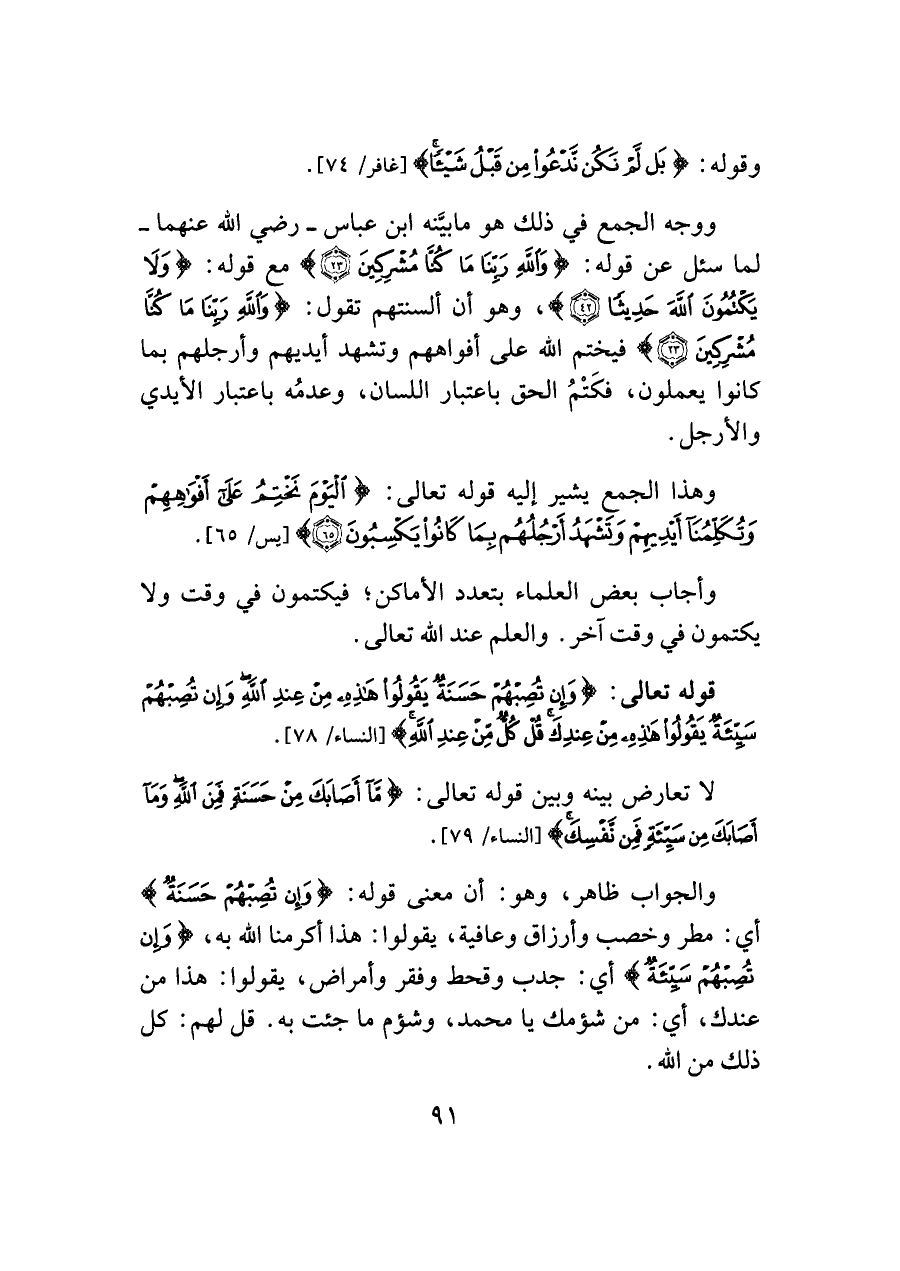 وقوله: ﴿ بَل لَّمْ نَكُن نَّدْعُوا۟ مِن قَبْلُ شَيْـًٔاۚ﴾ [غافر/ ٧٤].
ووجه الجمع في ذلك هو مابيَّنه ابن عباس ـ رضي الله عنهما ـ
لما سئل عن قوله: ﴿ وَٱللَّهِ رَبِّنَا مَا كُنَّا مُشْرِكِينَ ۝٢٣ ﴾ مع قوله: ﴿ وَلَا
يَكْتُمُونَ ٱللَّهَ حَدِيثًا ۝٤٢ ﴾، وهو أن ألسنتهم تقول: ﴿ وَٱللَّهِ رَبِّنَا مَا كُنَّا
مُشْرِكِينَ ۝٢٣ ﴾ فيختم الله على أفواههم وتشهد أيديهم وأرجلهم بما
كانوا يعملون، فكَتْمُ الحق باعتبار اللسان، وعدمُه باعتبار الأيدي
والأرجل.
وهذا الجمع يشير إليه قوله تعالى: ﴿ ٱلْيَوْمَ نَخْتِمُ عَلَىٰٓ أَفْوَٰهِهِمْ
وَتُكَلِّمُنَآ أَيْدِيهِمْ وَتَشْهَدُ أَرْجُلُهُم بِمَا كَانُوا۟ يَكْسِبُونَ ۝٦٥ ﴾ [يس/ ٦٥].
وأجاب بعض العلماء بتعدد الأماكن؛ فيكتمون في وقت ولا
يكتمون في وقت آخر. والعلم عند الله تعالى.
قوله تعالى: ﴿ وَإِن تُصِبْهُمْ حَسَنَةٌ يَقُولُوا۟ هَـٰذِهِۦ مِنْ عِندِ ٱللَّهِۖ وَإِن تُصِبْهُمْ
سَيِّئَةٌ يَقُولُوا۟ هَـٰذِهِۦ مِنْ عِندِكَۚ قُلْ كُلٌّ مِّنْ عِندِ ٱللَّهِۚ﴾ [النساء/ ٧٨].
لا تعارض بينه وبين قوله تعالى: ﴿ مَّآ أَصَابَكَ مِنْ حَسَنَةٍ فَمِنَ ٱللَّهِۖ وَمَآ
أَصَابَكَ مِن سَيِّئَةٍ فَمِن نَّفْسِكَۚ﴾ [النساء/ ٧٩].
والجواب ظاهر، وهو: أن معنى قوله: ﴿ وَإِن تُصِبْهُمْ حَسَنَةٌ ﴾
أي: مطر وخصب وأرزاق وعافية، يقولوا: هذا أكرمنا الله به، ﴿ وَإِن
تُصِبْهُمْ سَيِّئَةٌ ﴾ أي: جدب وقحط وفقر وأمراض، يقولوا: هذا من
عندك، أي: من شؤمك يا محمد، وشؤم ما جئت به. قل لهم: كل
ذلك من الله.
٩١